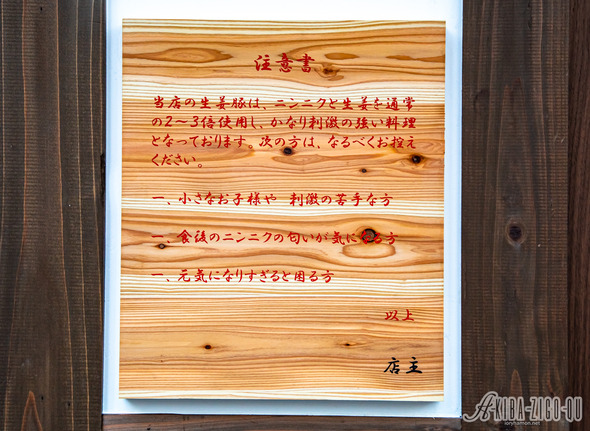 注意書
当店の生姜豚は、ニンニクと生姜を通常
の2～3倍使用し、かなり刺激の強い料理
となっております。次の方は、なるべくお控え
ください。
一、小さなお子様や　刺激の苦手な方
一、食後のニンニクの匂いが気になる方
一、元気になりすぎると困る方
以上
店主
AKIBA-ZIGO-OU
ioryhamon.net